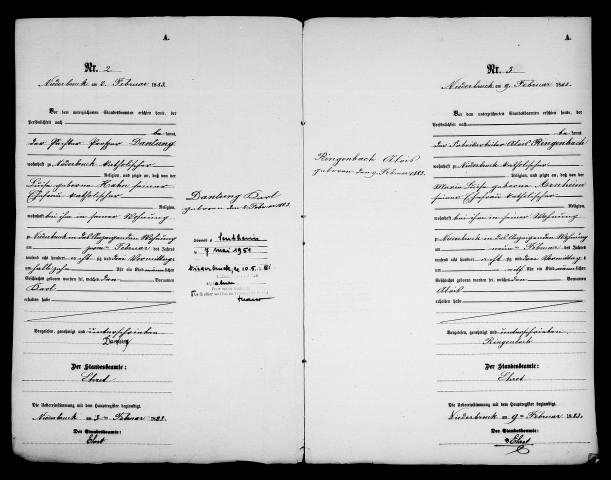 A.
Nr. 2
Niederbruck am 2. Februar 1883.
Vor dem unterzeichneten Standesbeamten erschien heute, der
Persönlichkeit nach
be kannt,
der Pächter Danlung
wohnhaft zu Niederbruck katholischer
Religion, und zeigte an, daß von der
Luise geborene Hahn seiner
Ehefrau katholischer
Religion,
wohnhaft bei ihm in seiner Wohnung
zu Niederbruck in des Anzeigenden Wohnung
am zwei Februar des Jahres
tausend acht hundert
Vormittags
um halb zehn Uhr ein Kind männlichen
Geschlechts geboren worden sei, welches den Vornamen
Karl
erhalten habe
Vorgelesen, genehmigt und unterschrieben
Danlung
Der Standesbeamte:
Ehret
Die Uebereinstimmung mit dem Hauptregister beglaubigt.
Niederbruck am 2ten Februar 1883.
Der Standesbeamte:
Ehret
Danlung Karl
geboren den 2. Februar 1883.
Décédé à Sentheim
le 7 mai 1951
Niederbruck, le 10.5.51
A.
Nr. 3
Niederbruck am 9. Februar 1883.
Vor dem unterzeichneten Standesbeamten erschien heute, der
Persönlichkeit nach
be kannt,
der Fabrikarbeiter Alois Ringenbach
wohnhaft zu Niederbruck katholischer
Religion, und zeigte an, daß von der
Maria Luise geborene
seiner Ehefrau katholischer
Religion,
wohnhaft bei ihm in seiner Wohnung
zu Niederbruck in des Anzeigenden Wohnung
am neun Februar des Jahres
tausend acht hundert
Vormittags
um acht Uhr ein Kind männlichen
Geschlechts geboren worden sei, welches den Vornamen
Alois
erhalten habe
Vorgelesen, genehmigt und unterschrieben
Ringenbach
Der Standesbeamte:
Ehret
Die Uebereinstimmung mit dem Hauptregister beglaubigt.
Niederbruck am 9ten Februar 1883.
Der Standesbeamte:
Ehret
Ringenbach Alois
geboren den 9. Februar 1883.